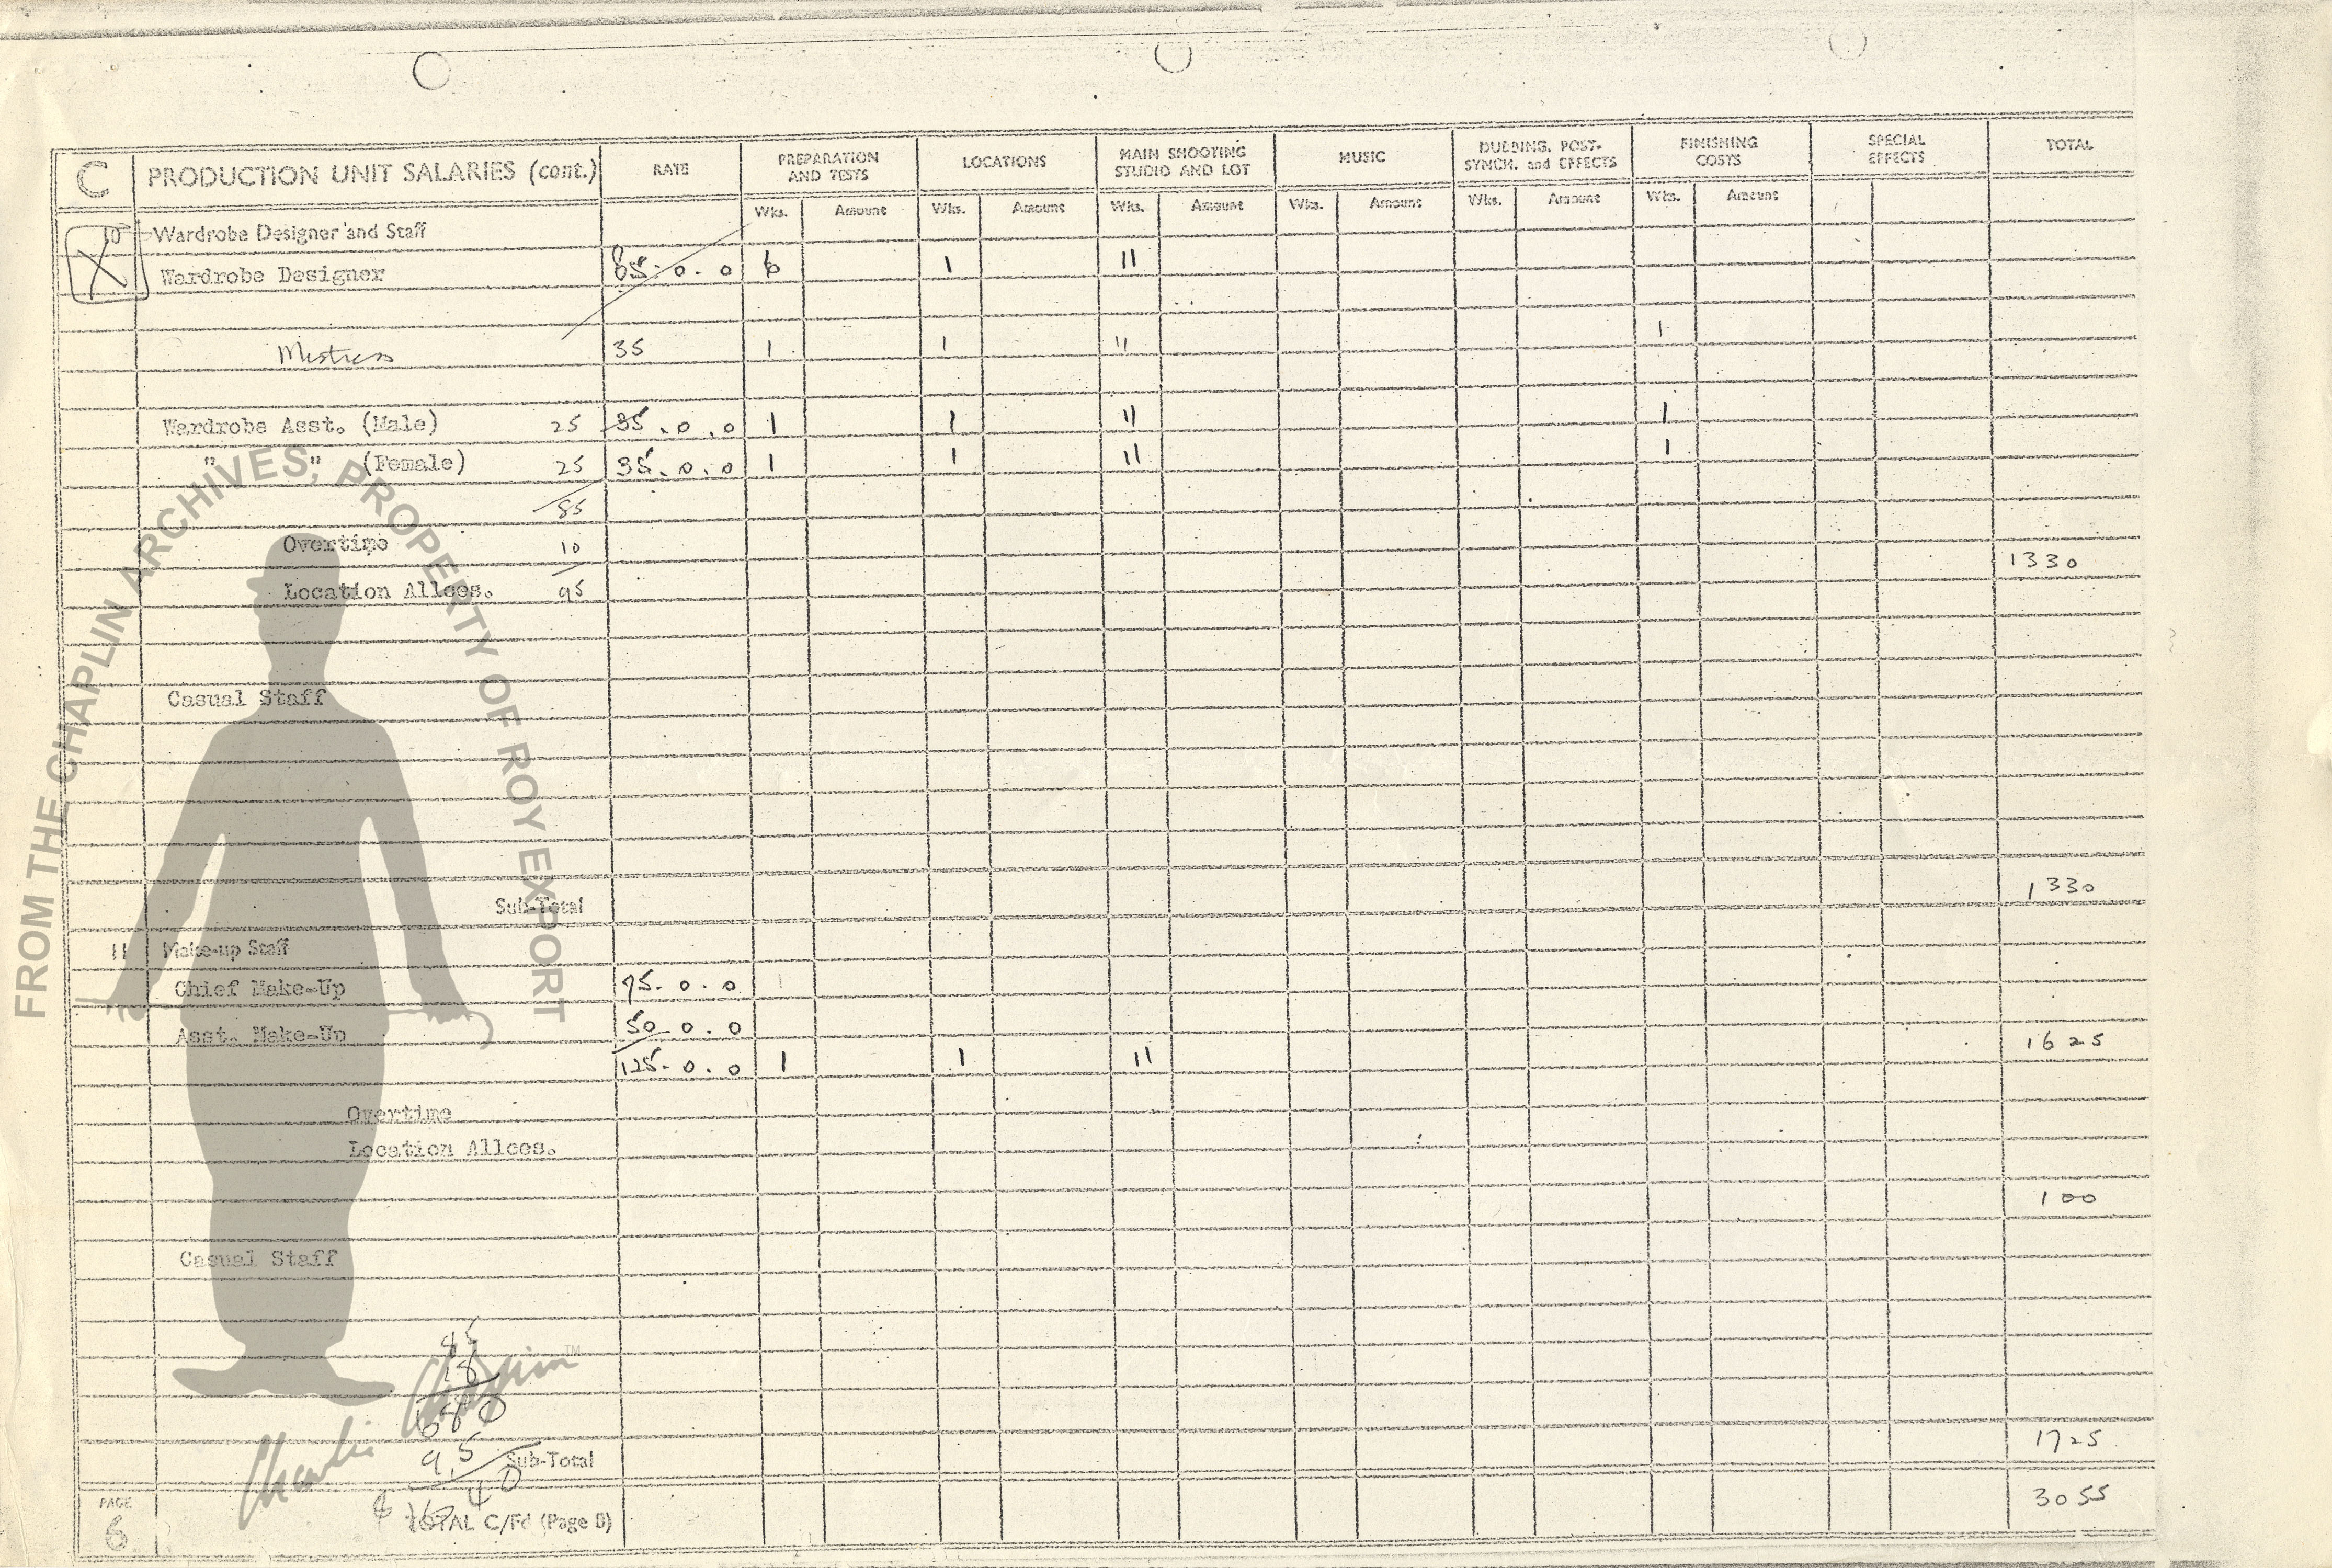 C PRODUCTION UNIT SALARIES (cont.) RATE PREPARATION AND TESTS LOCATIONS MAIN SHOOTING STUDIO AND LOT MUSIC DUBBING, POST-SYNCH. and EFFECTS FINISHING COSTS SPECIAL EFFECTS TOTAL
Wks. Amount Wks. Amount Wks. Amount Wks. Amount Wks. Amount Wks. Amount
10 Wardrobe Designer and Staff
X Wardrobe Designer 85. 0. 0 6 1 11
Mistress 35 1 1 11 1
Wardrobe Asst. (Male) 25 35. 0. 0 1 1 11 1
" " (Female) 25 35. 0. 0 1 1 11 1
85
Overtime 10 1330
Location Allces. 95
Casual Staff
Sub-Total 1330
11 Make-up Staff
Chief Make-Up 75. 0. 0
Asst. Make-Up 50. 0. 0 1625
125. 0. 0 1 1 11
Overtime
Location Allces.
100
Casual Staff
18
680
95
Sub-Total 1725
PAGE 6 TOTAL C/Fd (Page 8) 3055
FROM THE CHAPLIN ARCHIVES, PROPERTY OF ROY EXPORT
Charlie Chaplin TM